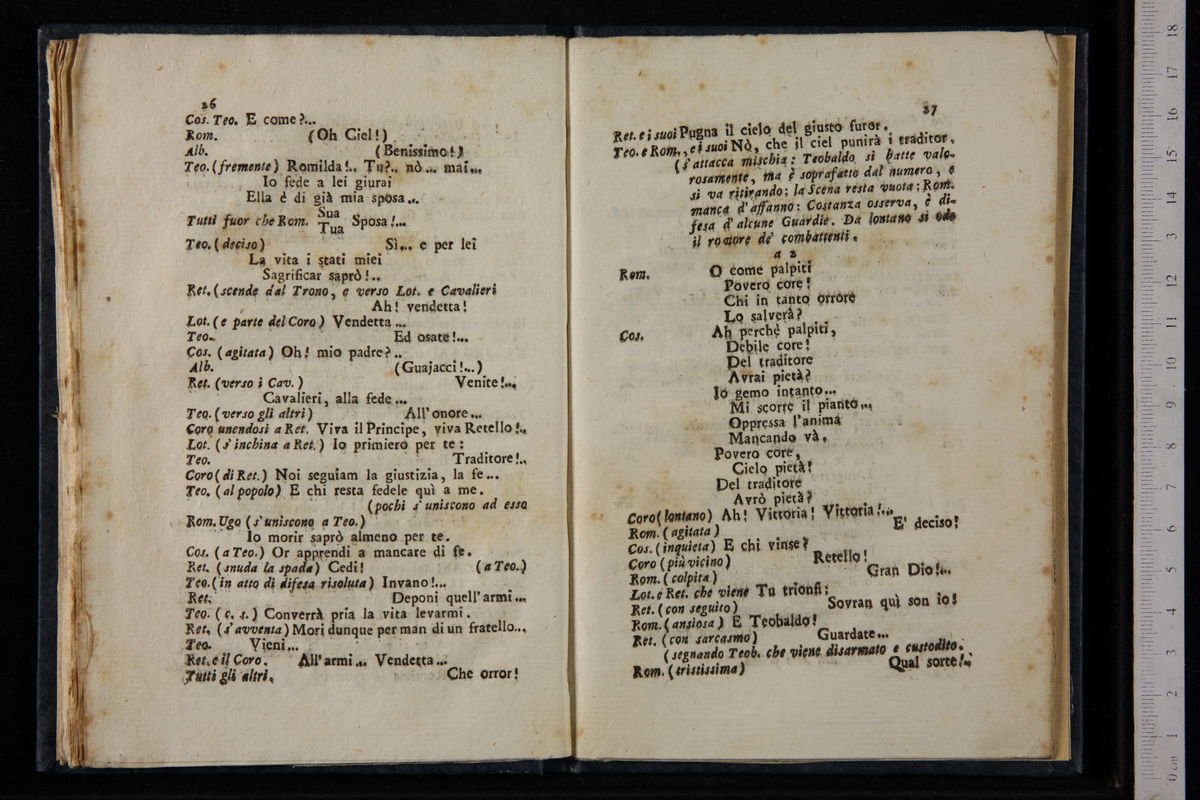 26
Cos. Teo. E come?...
Rom. (Oh Ciel!)
Alb. (Benissimo!)
Teo. (fremente) Romilda!.. Tu?.. nò ... mai...
Io fede a lei giurai
Ella è di già mia sposa...
Tutti fuor che Rom. Sua Tua Sposa!...
Teo. (deciso) Sì... e per lei
La vita i stati miei
Sagrificar saprò!..
Ret. (scende dal Trono, e verso Lot. e Cavalieri
Ah! vendetta!
Lot. (e parte del Coro) Vendetta ...
Teo. Ed osate!...
Cos. (agitata) Oh! mio padre?..
Alb. (Guajacci!...)
Ret. (verso i Cav.) Venite!...
Cavalieri, alla fede...
Teo. (verso gli altri) All'onore...
Coro unendosi a Ret. Viva il Principe, viva Retello!..
Lot. (s'inchina a Ret.) Io primiero per te:
Teo. Traditore!..
Coro (di Ret.) Noi seguiam la giustizia, la fe...
Teo. (al popolo) E chi resta fedele quì a me.
(pochi s'uniscono ad esso
Rom. Ugo (s'uniscono a Teo.)
Io morir saprò almeno per te.
Cos. (a Teo.) Or apprendi a mancare di fe.
Ret. (snuda la spada) Cedi! (a Teo.)
Teo. (in atto di difesa risoluta) Invano!...
Ret. Deponi quell'armi...
Teo. (c. s.) Converrà pria la vita levarmi.
Ret. (s'avventa) Mori dunque per man di un fratello...
Teo. Vieni...
Ret. e il Coro. All'armi... Vendetta...
Tutti gli altri. Che orror!
27
Ret. e i suoi Pugna il cielo del giusto furor.
Teo. e Rom., e i suoi Nò, che il ciel punirà i traditor.
(s'attacca mischia: Teobaldo si batte valo-
rosamente, ma è soprafatto dal numero, e
si va ritirando; la Scena resta vuota; Rom.
manca d'affanno: Costanza osserva, è di-
fesa d'alcune Guardie. Da lontano si ode
il romore de' combattenti.
a 2
Rom. O come palpiti
Povero core!
Chi in tanto orrore
Lo salverà?
Cos. Ah perchè palpiti,
Debile core!
Del traditore
Avrai pietà?
Io gemo intanto...
Mi scorre il pianto...
Oppressa l'anima
Mancando và.
Povero core,
Cielo pietà!
Del traditore
Avrò pietà?
Coro (lontano) Ah! Vittoria! Vittoria!...
Rom. (agitata) E' deciso!
Cos. (inquieta) E chi vinse?
Coro (più vicino) Retello!
Rom. (colpita) Gran Dio!...
Lot. e Ret. che viene Tu trionfi:
Ret. (con seguito) Sovran quì son io!
Rom. (ansiosa) E Teobaldo!
Ret. (con sarcasmo) Guardate...
(segnando Teob. che viene disarmato e custodito.
Rom. (tristissima) Qual sorte!..
0 cm 1 2 3 4 5 6 7 8 9 10 11 12 13 14 15 16 17 18